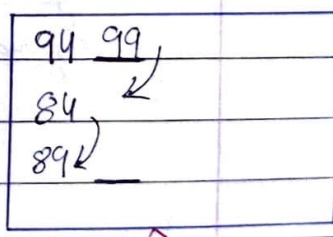 94 99
84
89